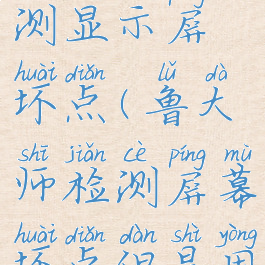 测显示屏
huài diǎn lǔ dà
坏点(鲁大
shī jiǎn cè píng mù
师检测屏幕
huài diǎn dàn shì yòng
坏点但是用